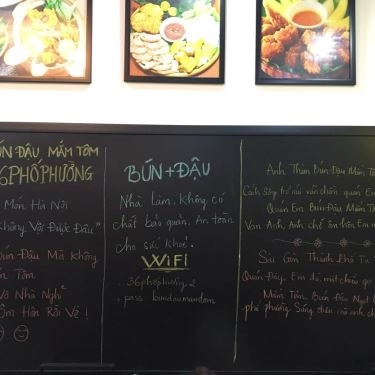 ÚN ĐẬU MẮM TÔM
6PHỐPHƯỜNG
Món Hà Nội
Không, Vật Được Đâu"
ún Đậu Mà Không
n Tôm
Vô Nhà Nghỉ
Ôm Hôn Rồi Về !
BÚN+ĐẬU
Nhà làm, không có
chất bảo quản. An toàn
cho sức khoẻ.
WiFi
. 36phốphường 2
. pass: bundaumamtom
Anh Thèm Bún Đậu Mắm Tôm
quán Em
Quán Em Bún Đậu Mắm Tôm
Vắng Anh, Anh chê ồn hôn Em
Sài Gòn Thành Phố Ta
Quán Đây, Em đó, một chiều
Mắm Tôm, Bún Đậu Ngọt
phố phường Sáng chiều